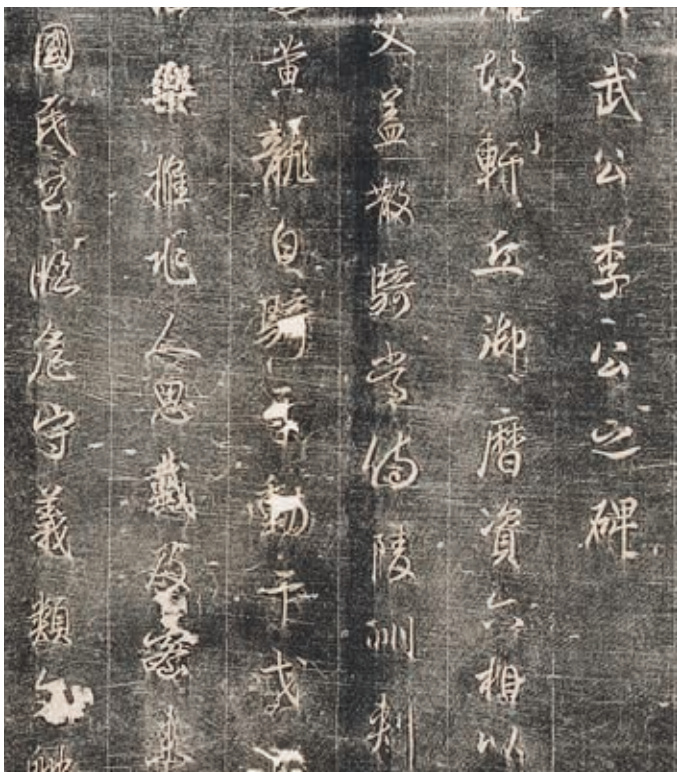 武公李公之碑
故軒丘御曆資六相以
父盖散騎常侍陵州刺
黄龍自騎動干戈
樂推兆人思戴及密
國民臨危守義類